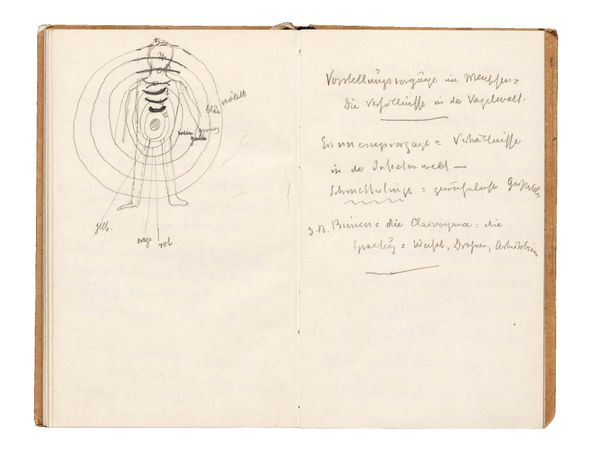 blau violett
grün
gelb.
orge
rot
Vorstellungsvorgänge im Menschen =
die Verhältnisse in der Vogelwelt.
Erinnerungsvorgänge = Verhältnisse
in der Insectenwelt —
Schmetterlinge =
z. B. Bienen = die Clairvoyance = die
= Weisel, Drohnen, Arbeitsbienen